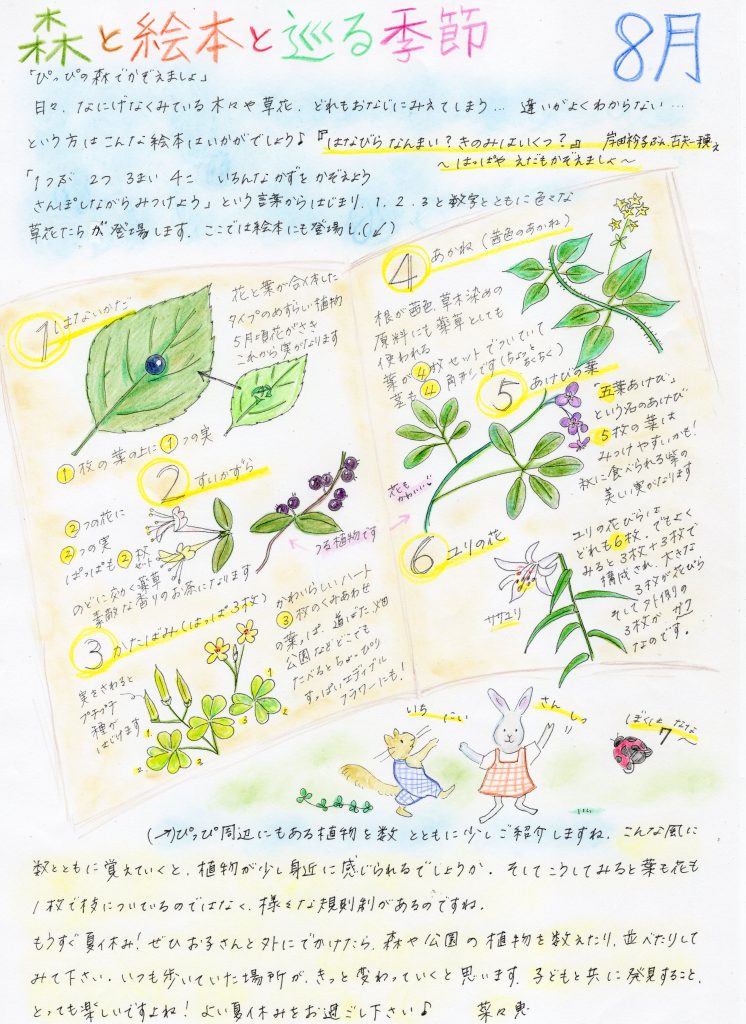 森と絵本と巡る季節 8月
「ぴっぴの森でかぞえましょ」
日々、なにげなくみている木々や草花、どれもおなじにみえてしまう… 違いがよくわからない…
という方はこんな絵本はいかがでしょう♪『はなびらなんまい?きのみはいくつ?』 岸田衿子ぶん、古矢一穂え
～はっぱや えだもかぞえましょ～
「1つが 2つ 3まい 4こ いろんなかずを かぞえよう
さんぽしながらみつけよう」という言葉からはじまり、1、2、3と数字とともに色々な
草花たちが登場します。ここでは絵本にも登場し、(↙)
1 はないかだ
花と葉が合体した
タイプのめずらしい植物
5月頃花がさき
これから実がなります
1枚の葉の上に1つの実
2 すいかずら
2つの花に
2つの実
はっぱも2枚セット
のどに効く薬草
素敵な香りのお茶になります
つる植物です
3 かたばみ(はっぱ3枚)
かわいらしいハート
3枚のくみあわせ
の葉っぱ、道ばた、畑
公園などどこでも
たべるとちょっぴり
すっぱいエディブル
フラワーにも!
実をさわると
プチプチ
種が
はじけます
1
2
3
1
2
3
4 あかね(茜色のあかね)
根が茜色、草木染めの
原料にも薬草としても
使われる
葉が4枚セットでついていて
茎も4角形です(ちょっとちくちく)
5 あけびの葉
「五葉あけび」
という名のあけび
5枚の葉は
みつけやすいかも!
秋に食べられる紫の
美しい実がなります
花もかわいい♡
6 ユリの花
ササユリ
ユリの花びらは
どれも6枚、でもよく
みると3枚+3枚で
構成され、大きな
3枚が花びら
そして外側の
3枚がガク
なのです。
いち にい さん しっ!!
ぼくしょ なな 7～
(↗)ぴっぴ周辺にもある植物を数とともに少しご紹介しますね。こんな風に
数とともに覚えていくと、植物が少し身近に感じられるでしょうか。そしてこうしてみると葉も花も
1枚で枝についているのではなく、様々な規則制があるのですね。
もうすぐ夏休み!ぜひお子さんと外にでかけたら、森や公園の植物を数えたり、並べたりして
みて下さい。いつも歩いていた場所が、きっと変わっていくと思います。子どもと共に発見すること、
とっても楽しいですよね!よい夏休みをお過ごし下さい♪ 菜々恵